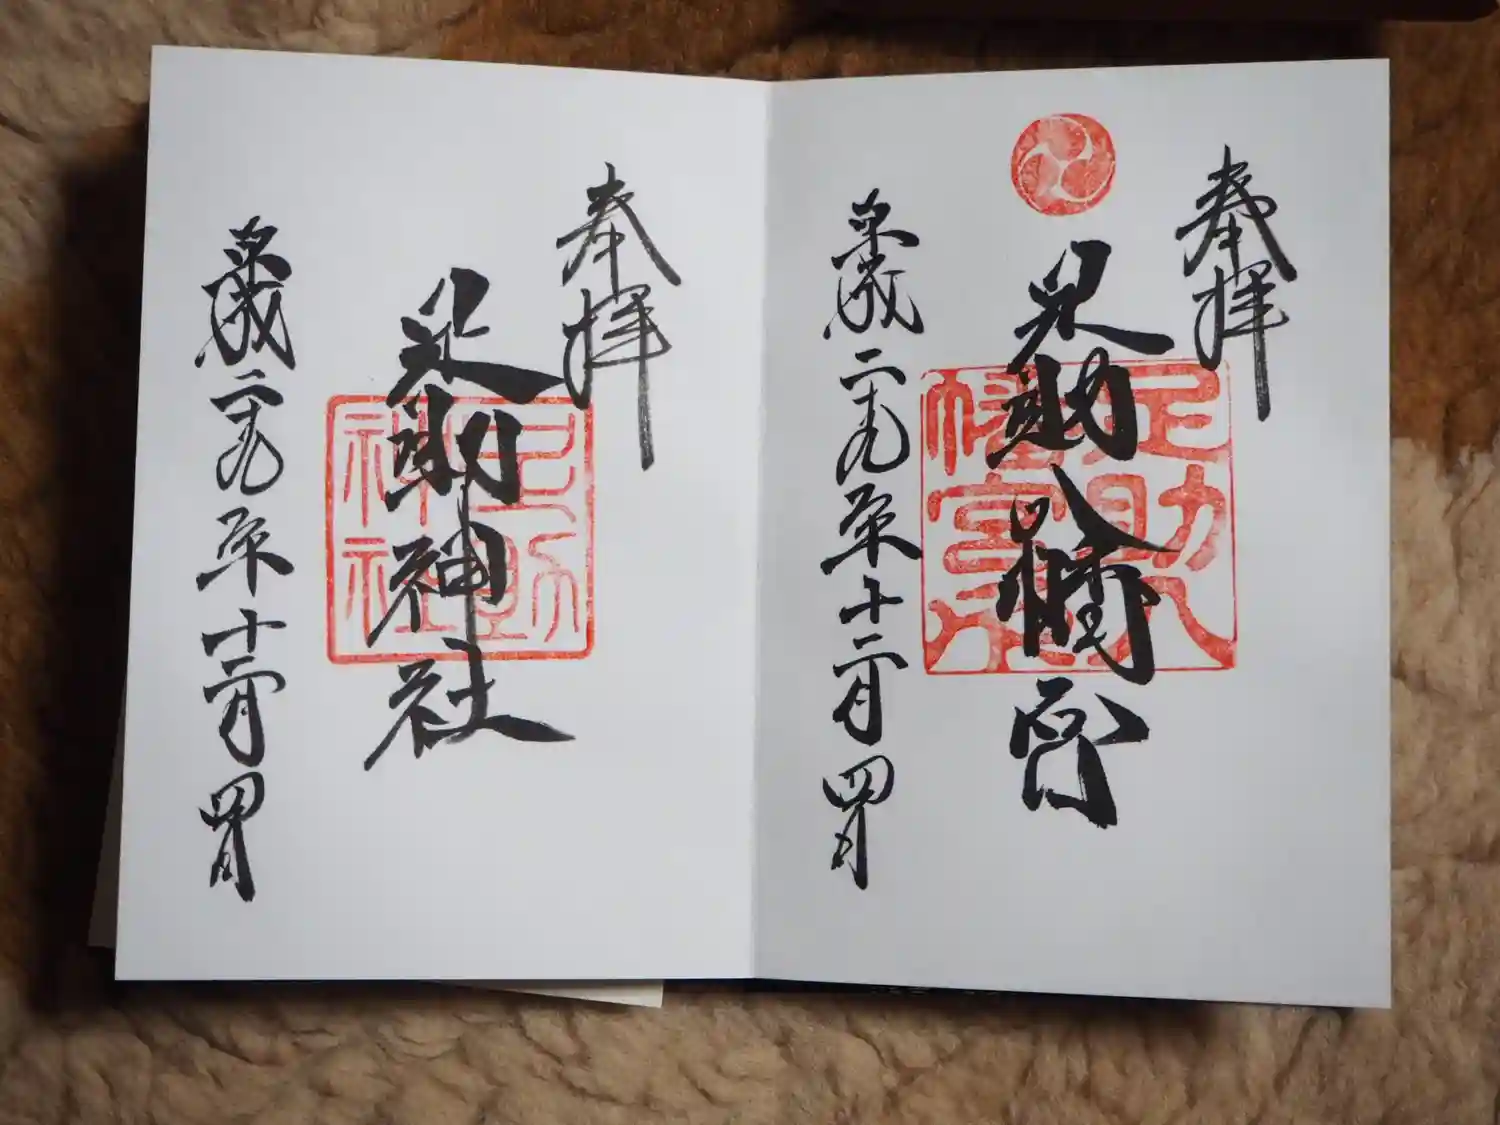 奉拝
足助八幡宮
足助八幡宮印
平成二十九年十二月四日
奉拝
足助神社
足助神社
平成二十九年十二月四日